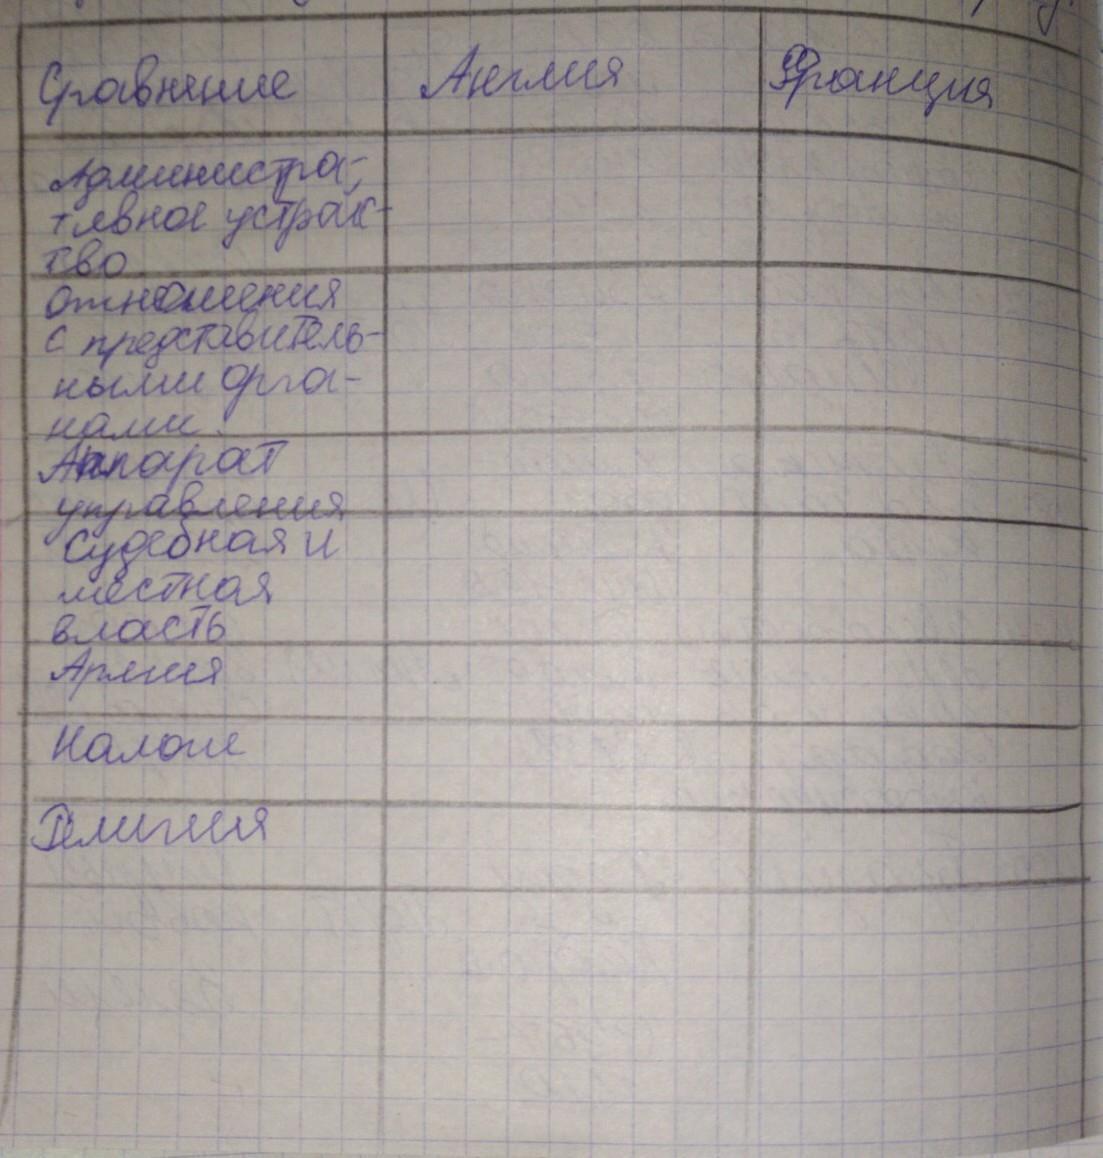 Сравнение Англия Франция
Администра-
тивное устрой-
тво
отношения
с представитель-
ными орга-
нами.
Аппарат
управления
Судебная и
местная
власть
Армия
Налоги
Религия